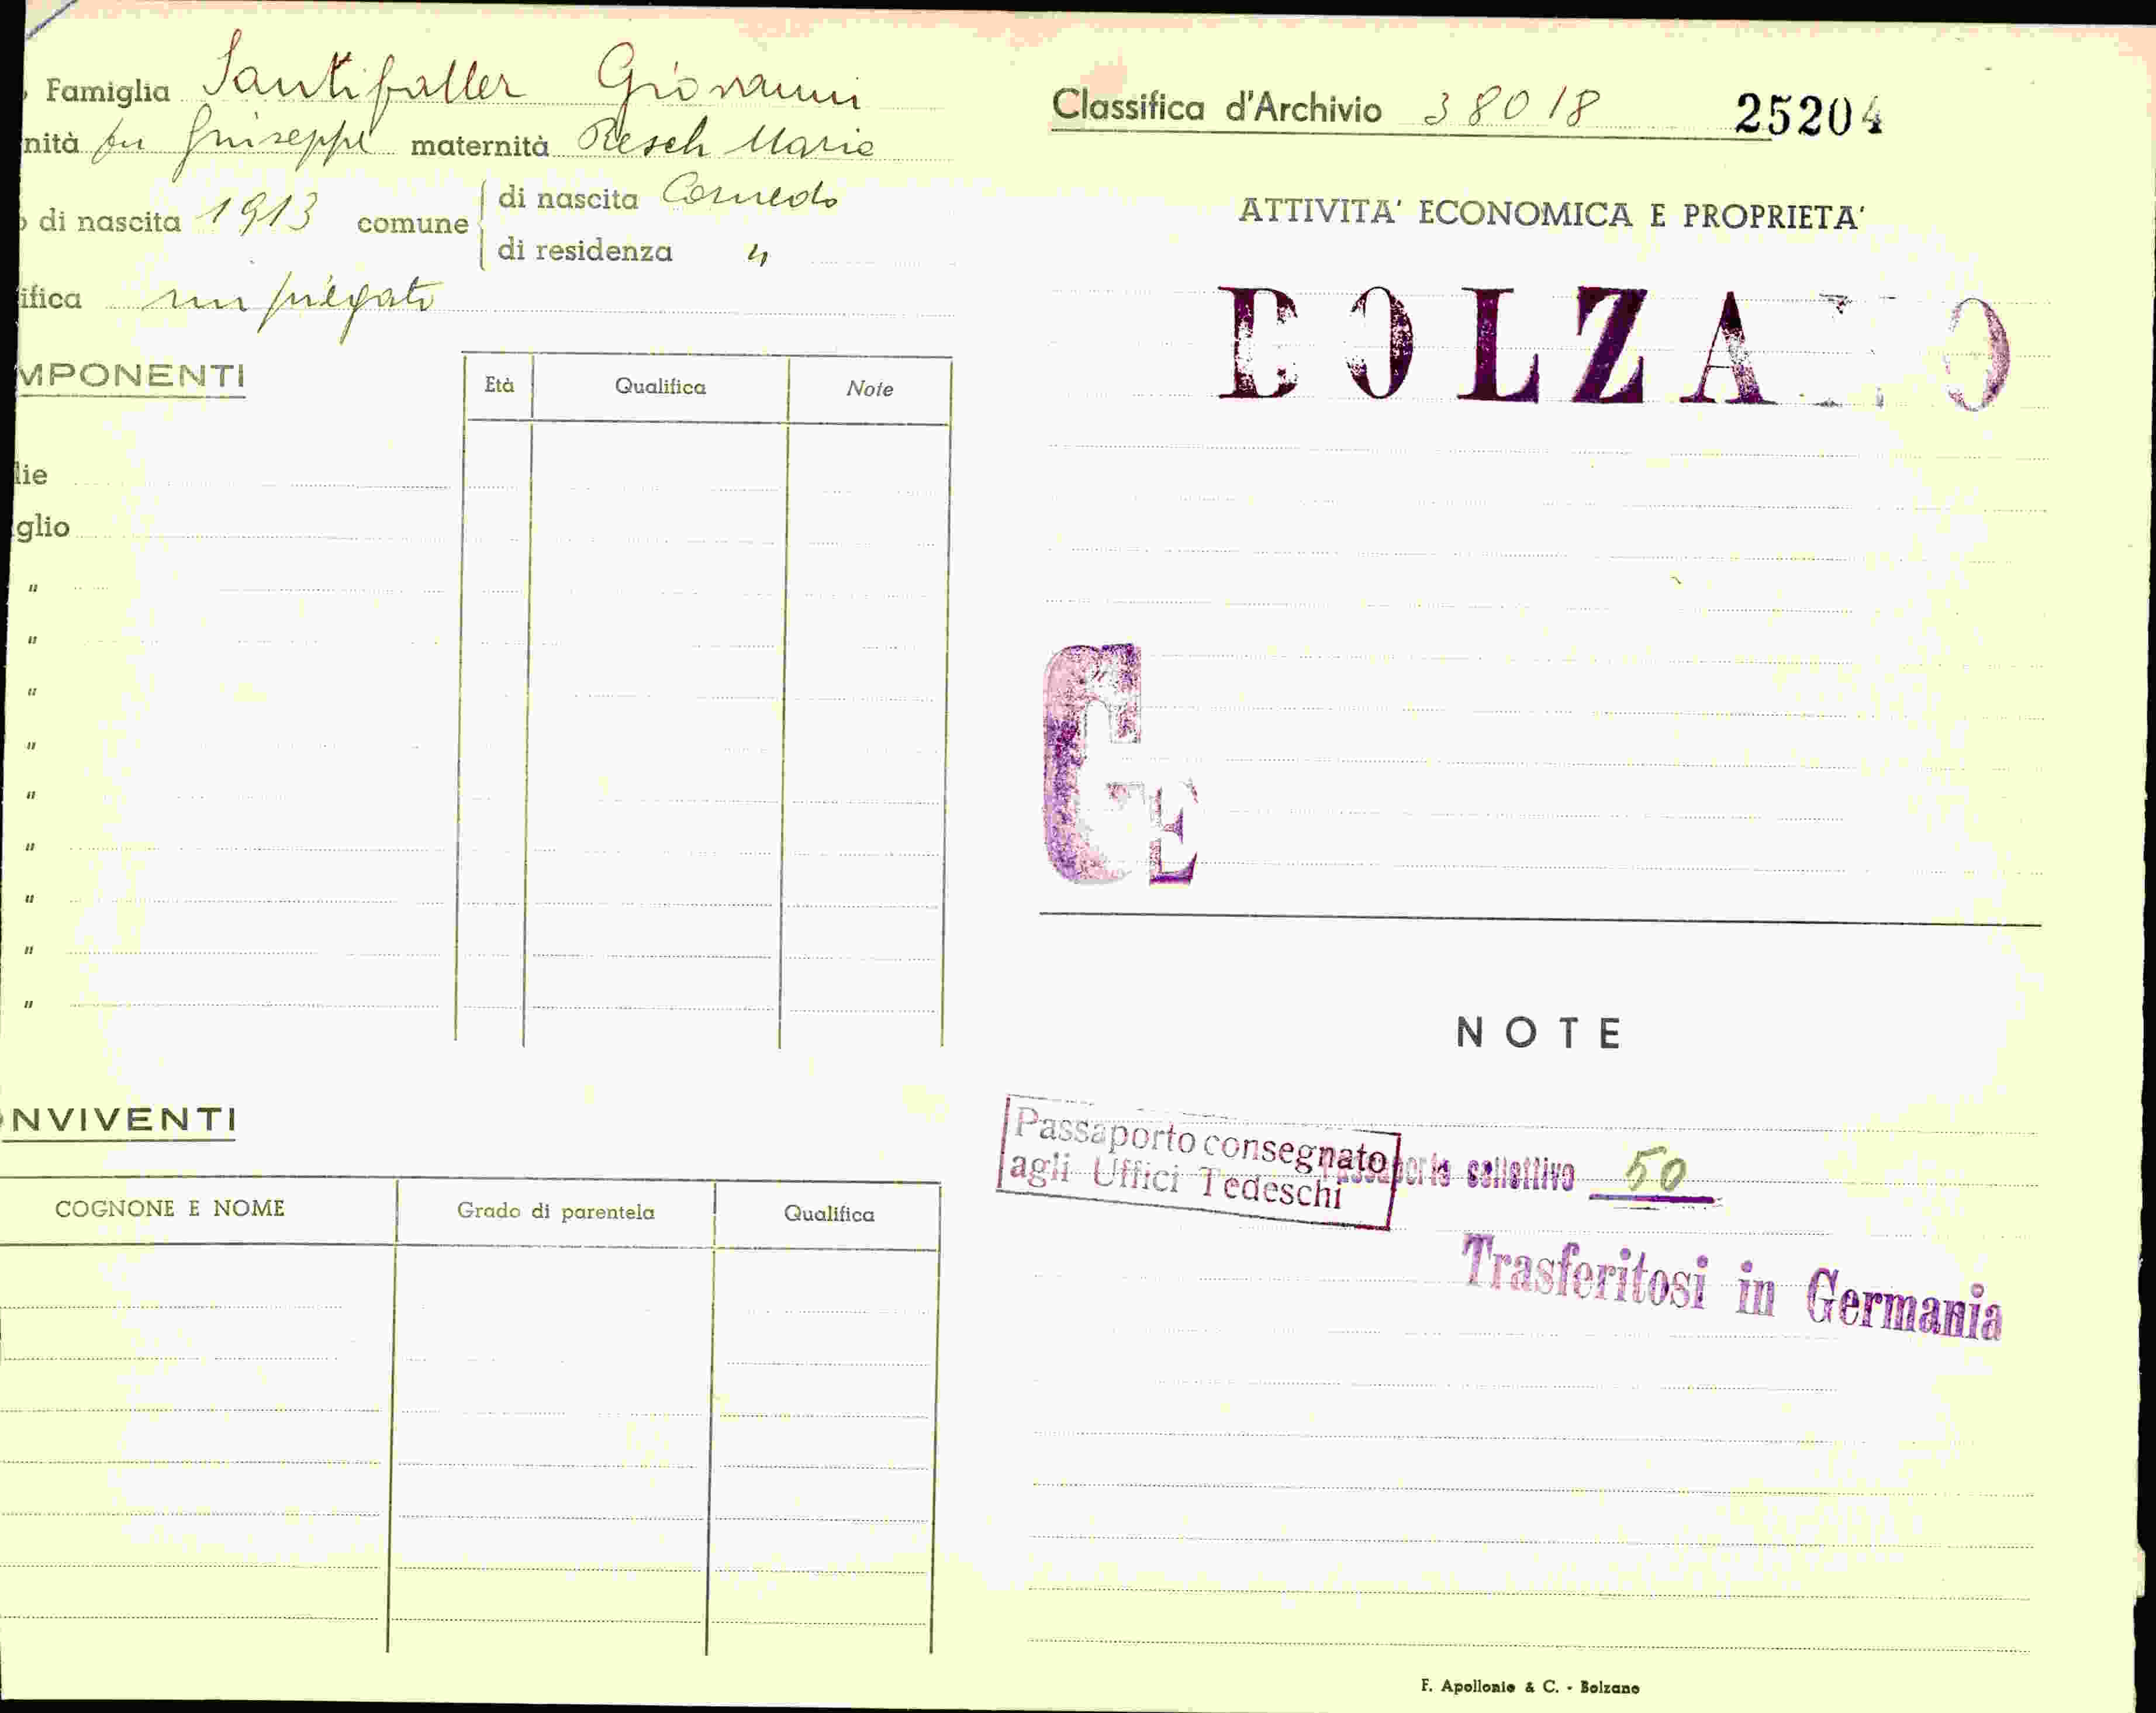 Famiglia Santifaller Giovanni
nità fu Giuseppe maternità Resch Maria
di nascita 1913 comune di nascita Cornedo
di residenza "
ifica impiegato
MPONENTI
Età Qualifica Note
lie
glio
"
"
"
"
"
"
"
"
"
NVIVENTI
COGNONE E NOME Grado di parentela Qualifica
Classifica d'Archivio 38018 25204
ATTIVITA' ECONOMICA E PROPRIETA'
BOLZANO
GE
NOTE
Passaporto consegnato
agli Uffici Tedeschi
collettivo 50
Trasferitosi in Germania
F. Apollonio & C. - Bolzano